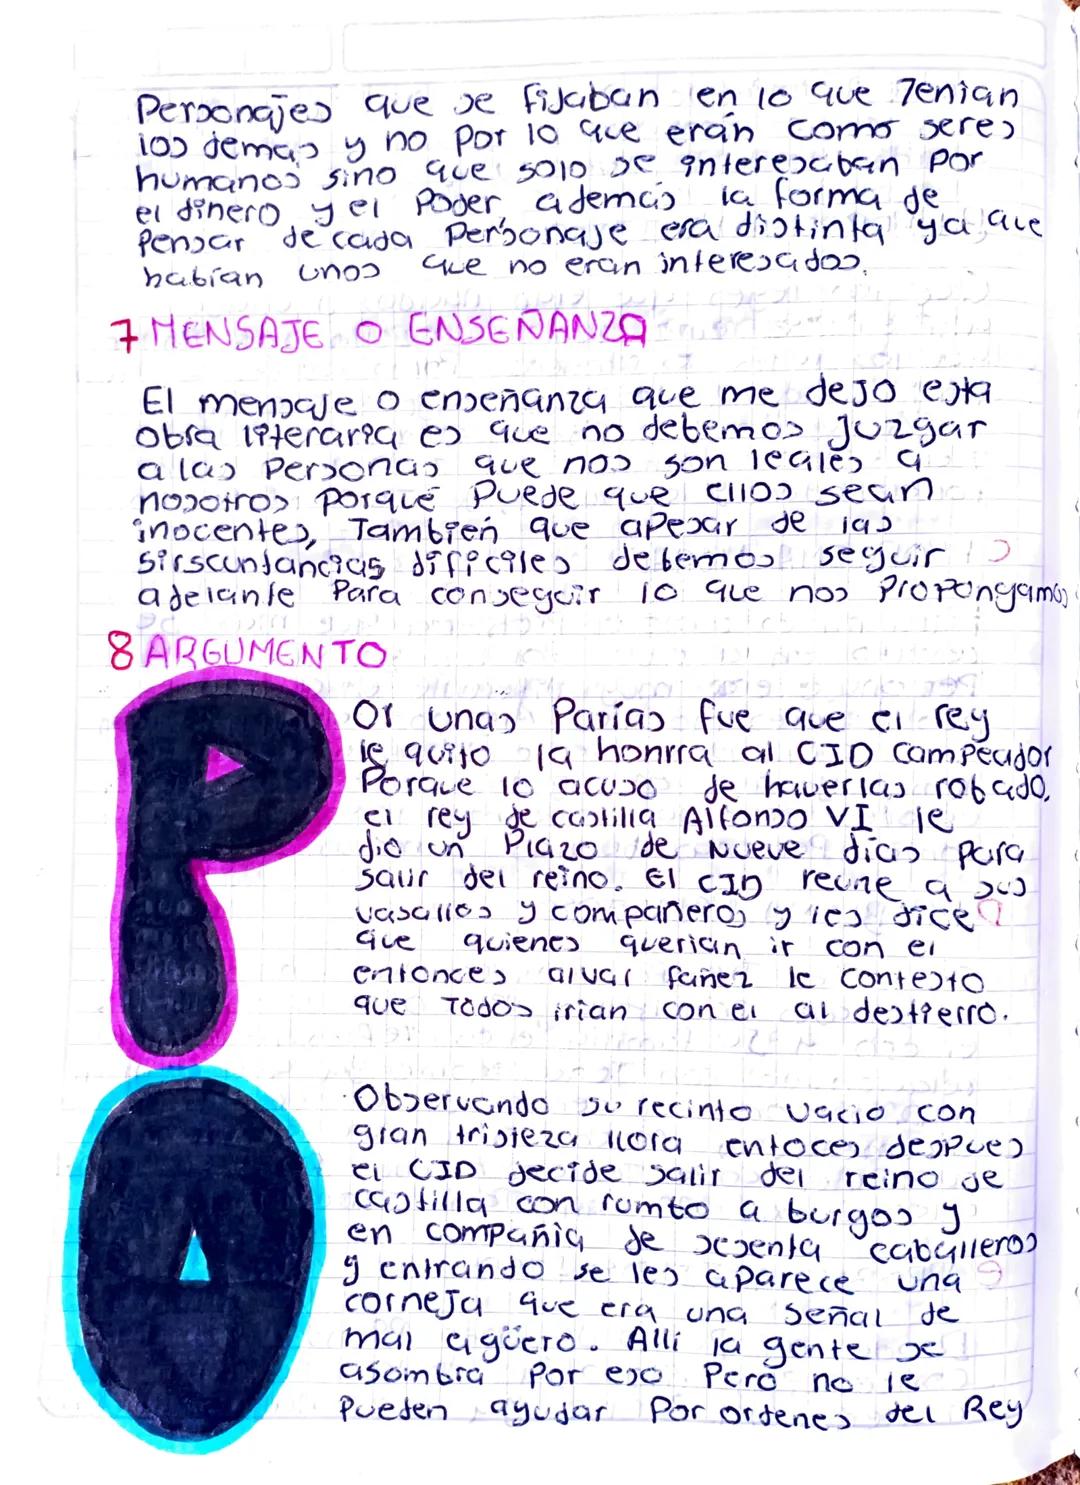 Personajes que se fijaban en lo que Tenian
los demas y no por lo que erán como seres
humanos sino que solo se interesaban por
el dinero y el Poder, además la forma de
Pensar de cada Personaje era distinta ya que
habían unos que no eran interesados.
7 MENSAJE O ENSEÑANZA
El mensaje o enseñanza que me dejo esta
obra literaria es que no debemos juzgar
a las Personas que nos son leales a
nosotros porque Puede que ellos sean
inocentes, También que apesar de las
sirscuntancias dificiles debemos seguir
adelante Para conseguir lo que nos Propongamos
8 ARGUMENTO
POr unas Parias fue que el rey
le quito la honrra al CID campeador
Porque lo acuso de haverlas robado.
el rey de castilla Alfonso VI le
dio un Plazo de Nueve días para
salir del reino. El CID reune a sus
vasallos y compañeros y les dice
que quienes querian ir con el
entonces alvar fañez le contesto
que Todos irian con el al destierro.
Observando su recinto vacio con
gran tristeza llora entoces despues
el CID decide salir del reino de
castilla con rumbo a burgos y
en compañia de sesenta caballeros
y entrando se les aparece una
corneja que era una señal de
mal agüero. Alli la gente se
asombra Por eso Pero no le
Pueden ayudar Por ordenes del Rey